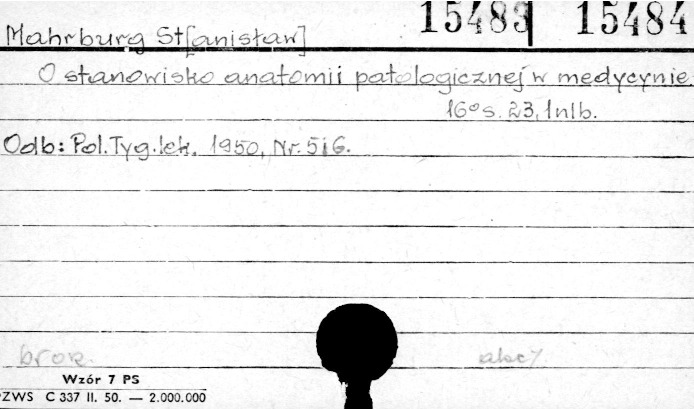 15483 15484
Mahrburg St[anisław]
O stanowisko anatomii patologicznej w medycynie
16° s. 23, 1 nlb.
Odb: Pol. Tyg. lek. 1950, Nr. 5 i 6.
brosz.
Wzór 7 PS
PZWS C 337 II. 50. — 2.000.000